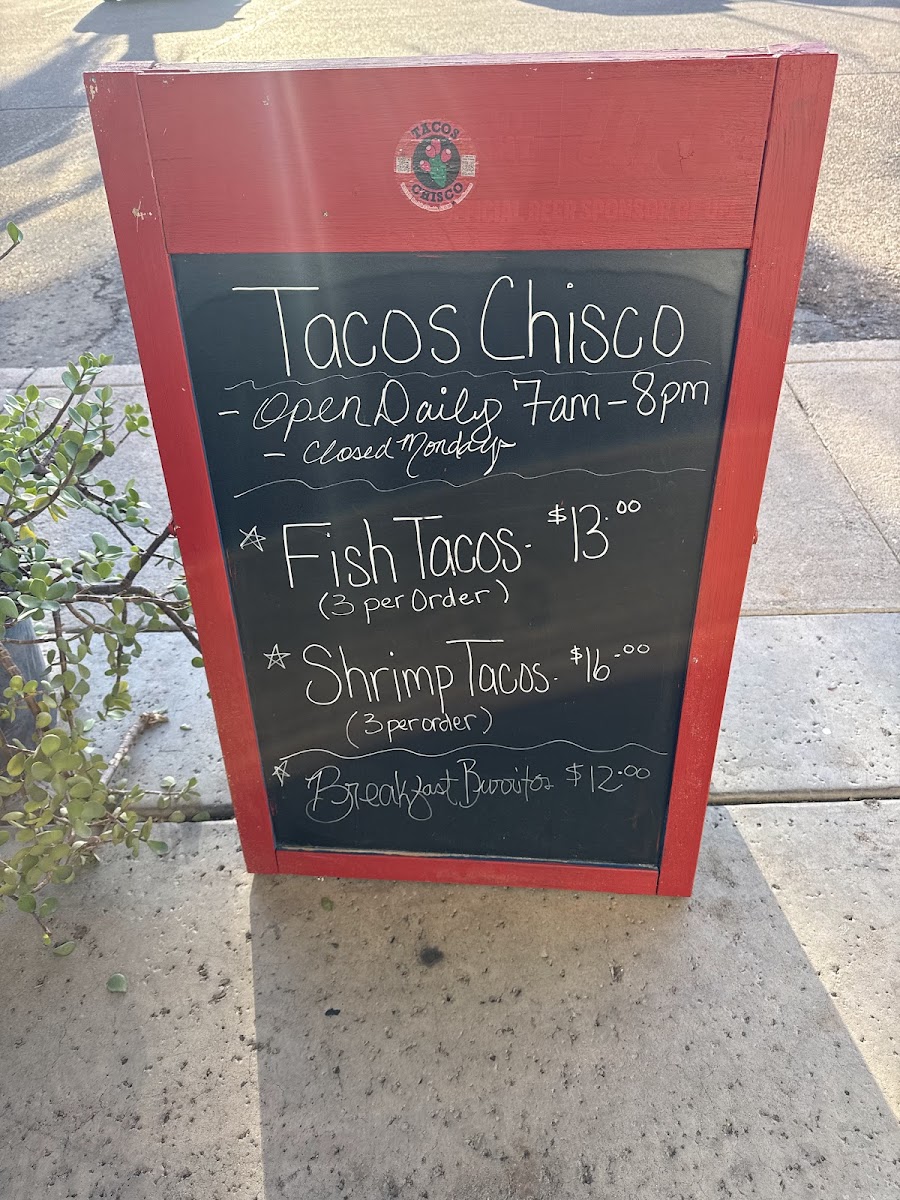 TACOS
CHISCO
OFFICIAL BEER SPONSOR
Tacos Chisco
- Open Daily 7am-8pm
- Closed Mondays
☆ Fish Tacos- $13.00
(3 per Order)
☆ Shrimp Tacos- $16.00
(3 per order)
☆ Breakfast Burritos $12.00